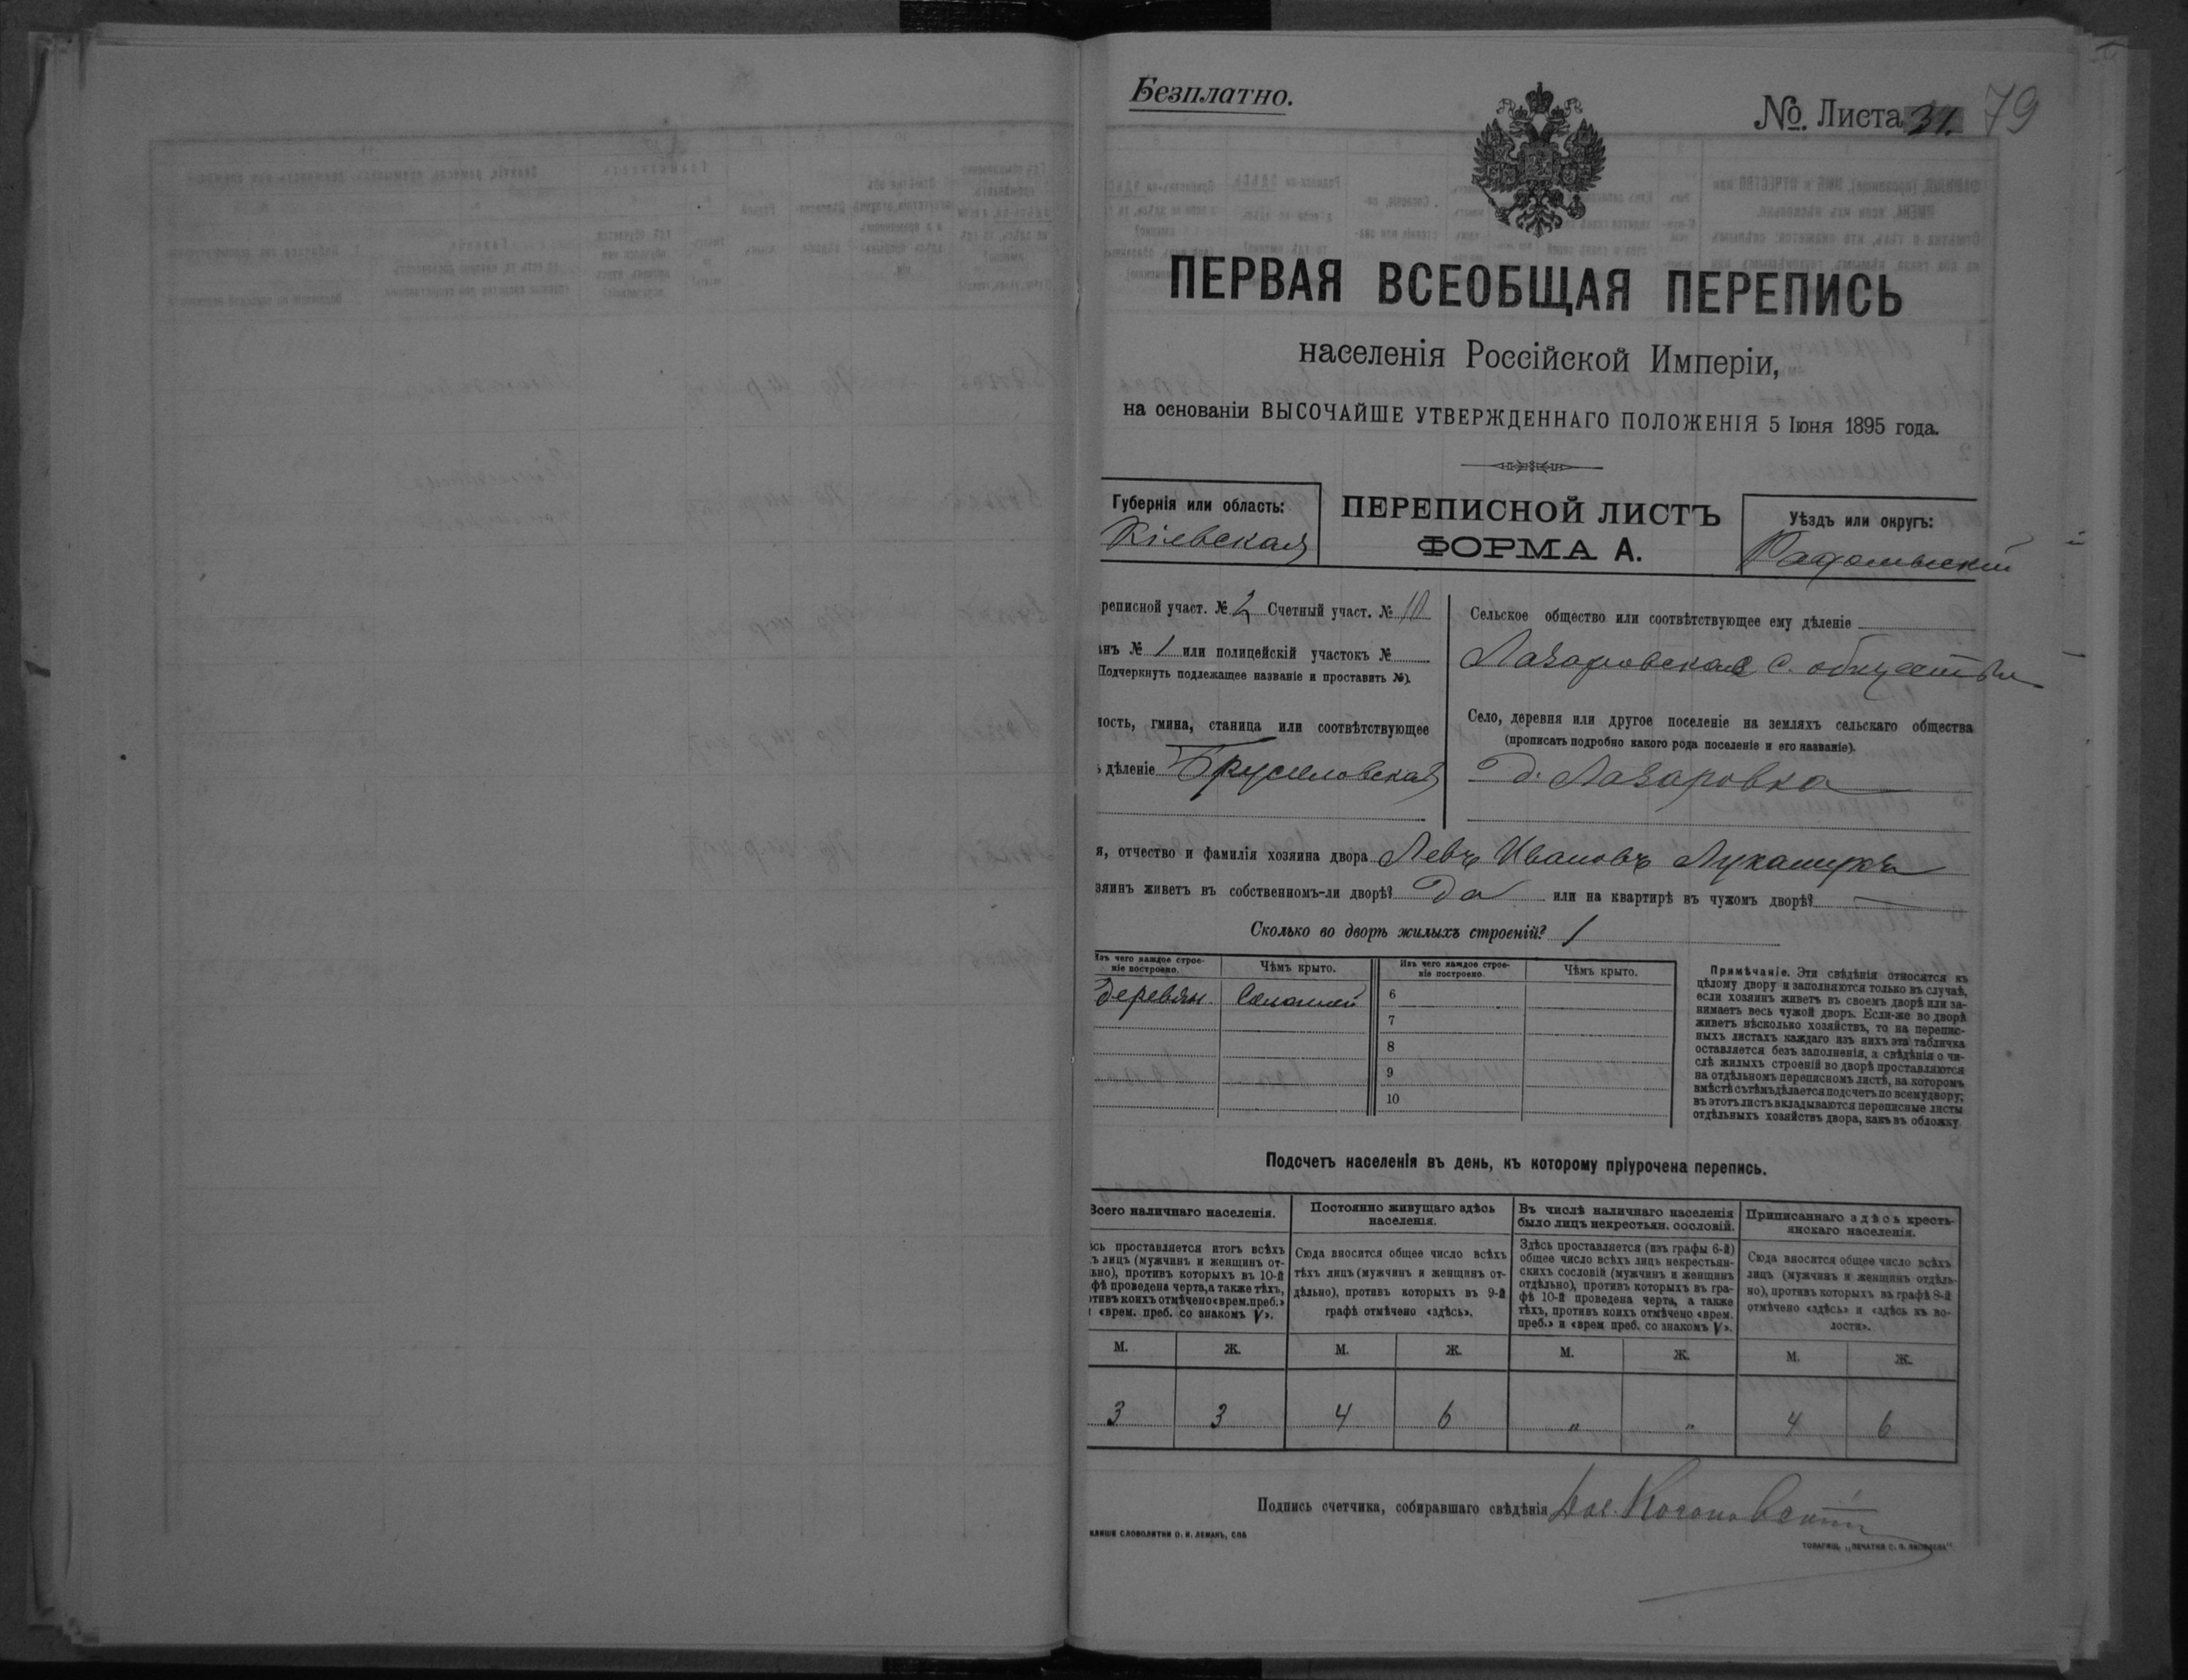 Безплатно.
№. Листа 31. 79
ПЕРВАЯ ВСЕОБЩАЯ ПЕРЕПИСЬ
населенія Россійской Имперіи,
на основаніи ВЫСОЧАЙШЕ УТВЕРЖДЕННАГО ПОЛОЖЕНІЯ 5 Іюня 1895 года.
Губернія или область:
Кіевская
ПЕРЕПИСНОЙ ЛИСТЪ
ФОРМА А.
Уѣздъ или округъ:
Радомысскій
реписной участ. № 2 Счетный участ. № 10
анъ № 1 или полицейскій участокъ №
Подчеркнуть подлежащее названіе и проставить №).
ность, гмина, станица или соотвѣтствующее
ь дѣленіе Брусиловская
Сельское общество или соотвѣтствующее ему дѣленіе
Лазаровская с.
Село, деревня или другое поселеніе на земляхъ сельскаго общества
(прописать подробно какого рода поселеніе и его названіе).
д. Лазаровка
я, отчество и фамилія хозяина двора Левъ Ивановъ Лукашукъ
зяинъ живетъ въ собственномъ-ли дворѣ? Да или на квартирѣ въ чужомъ дворѣ? —
Сколько во дворѣ жилыхъ строеній? 1
Изъ чего каждое строе-
ніе построено.
Чѣмъ крыто.
Изъ чего каждое строе-
ніе построено.
Чѣмъ крыто.
Деревян. Соломой
6
7
8
9
10
Примѣчаніе. Эти свѣдѣнія относятся къ
цѣлому двору и заполняются только въ случаѣ,
если хозяинъ живетъ въ своемъ дворѣ или за-
нимаетъ весь чужой дворъ. Если-же во дворѣ
живетъ нѣсколько хозяйствъ, то на перепис-
ныхъ листахъ каждаго изъ нихъ эта табличка
оставляется безъ заполненія, а свѣдѣнія о чи-
слѣ жилыхъ строеній во дворѣ проставляются
на отдѣльномъ переписномъ листѣ, на которомъ
вмѣстѣ съ тѣмъ дѣлается подсчетъ по всему двору;
въ этотъ листъ вкладываются переписные листы
отдѣльныхъ хозяйствъ двора, какъ въ обложку.
Подсчетъ населенія въ день, къ которому пріурочена перепись.
Всего наличнаго населенія.
Постоянно живущаго здѣсь
населенія.
Въ числѣ наличнаго населенія
было лицъ некрестьян. сословій.
Приписаннаго здѣсь кресть-
янскаго населенія.
сь проставляется итогъ всѣхъ
ъ лицъ (мужчинъ и женщинъ от-
ьно), противъ которыхъ въ 10-й
фѣ проведена черта, а также тѣхъ,
отивъ коихъ отмѣчено «врем. преб.»
и «врем. преб. со знакомъ V».
Сюда вносится общее число всѣхъ
тѣхъ лицъ (мужчинъ и женщинъ от-
дѣльно), противъ которыхъ въ 9-й
графѣ отмѣчено «здѣсь».
Здѣсь проставляется (изъ графы 6-й)
общее число всѣхъ лицъ некрестьян-
скихъ сословій (мужчинъ и женщинъ
отдѣльно), противъ которыхъ въ гра-
фѣ 10-й проведена черта, а также
тѣхъ, противъ коихъ отмѣчено «врем.
преб.» и «врем. преб. со знакомъ V».
Сюда вносится общее число всѣхъ
лицъ (мужчинъ и женщинъ отдѣль-
но), противъ которыхъ въ графѣ 8-й
отмѣчено «здѣсь» и «здѣсь къ во-
лости».
М. Ж. М. Ж. М. Ж. М. Ж.
3 3 4 6 " " 4 6
Подпись счетчика, собиравшаго свѣдѣнія
КЛИШЕ СЛОВОЛИТНИ О. И. ЛЕМАНЪ, СПБ
ТОВАРИЩ. „ПЕЧАТНЯ С. П. ЯКОВЛЕВА"